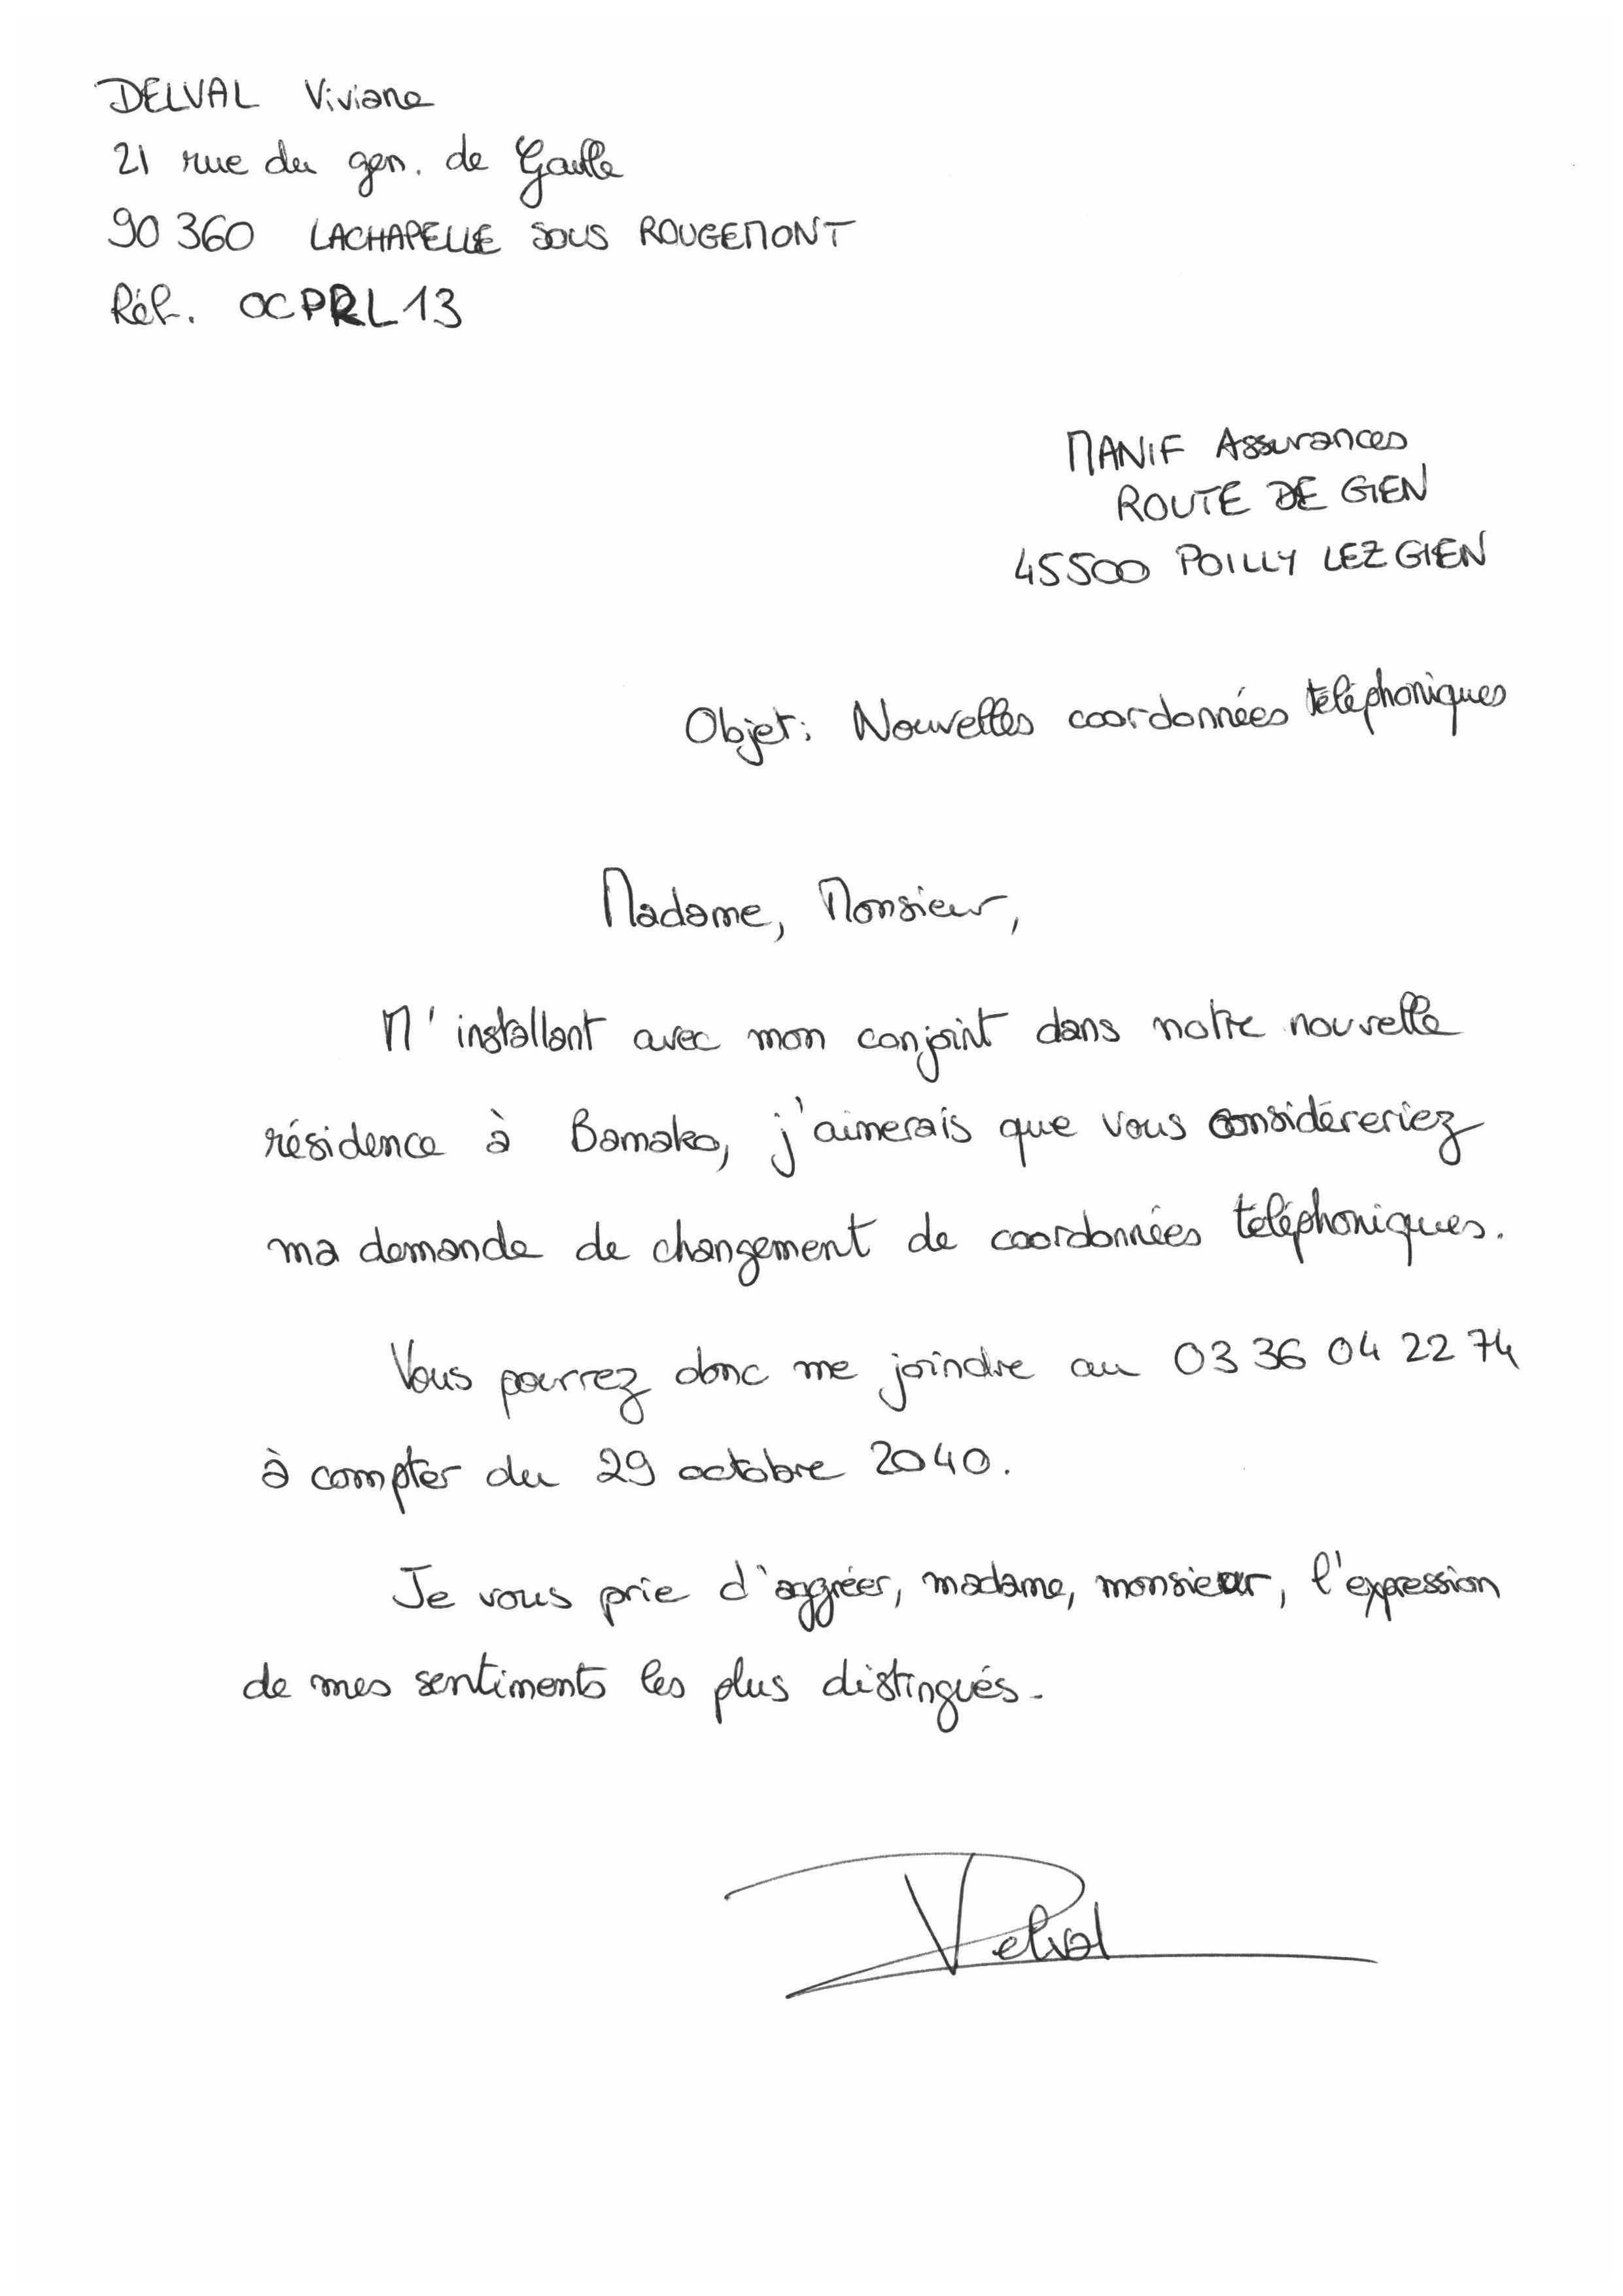 DELVAL Viviane
21 rue du gen. de Gaulle
90 360 LACHAPELLE SOUS ROUGEMONT
Réf. OCPRL13
MANIF Assurances
ROUTE DE GIEN
45500 POILLY LEZ GIEN
Objet: Nouvelles coordonnées téléphoniques
Madame, Monsieur,
M'installant avec mon conjoint dans notre nouvelle
résidence à Bamako, j'aimerais que vous considéreriez
ma demande de changement de coordonnées téléphoniques.
Vous pourrez donc me joindre au 03 36 04 22 74
à compter du 29 octobre 2040.
Je vous prie d'aggréer, madame, monsieur, l'expression
de mes sentiments les plus distingués.
Delval